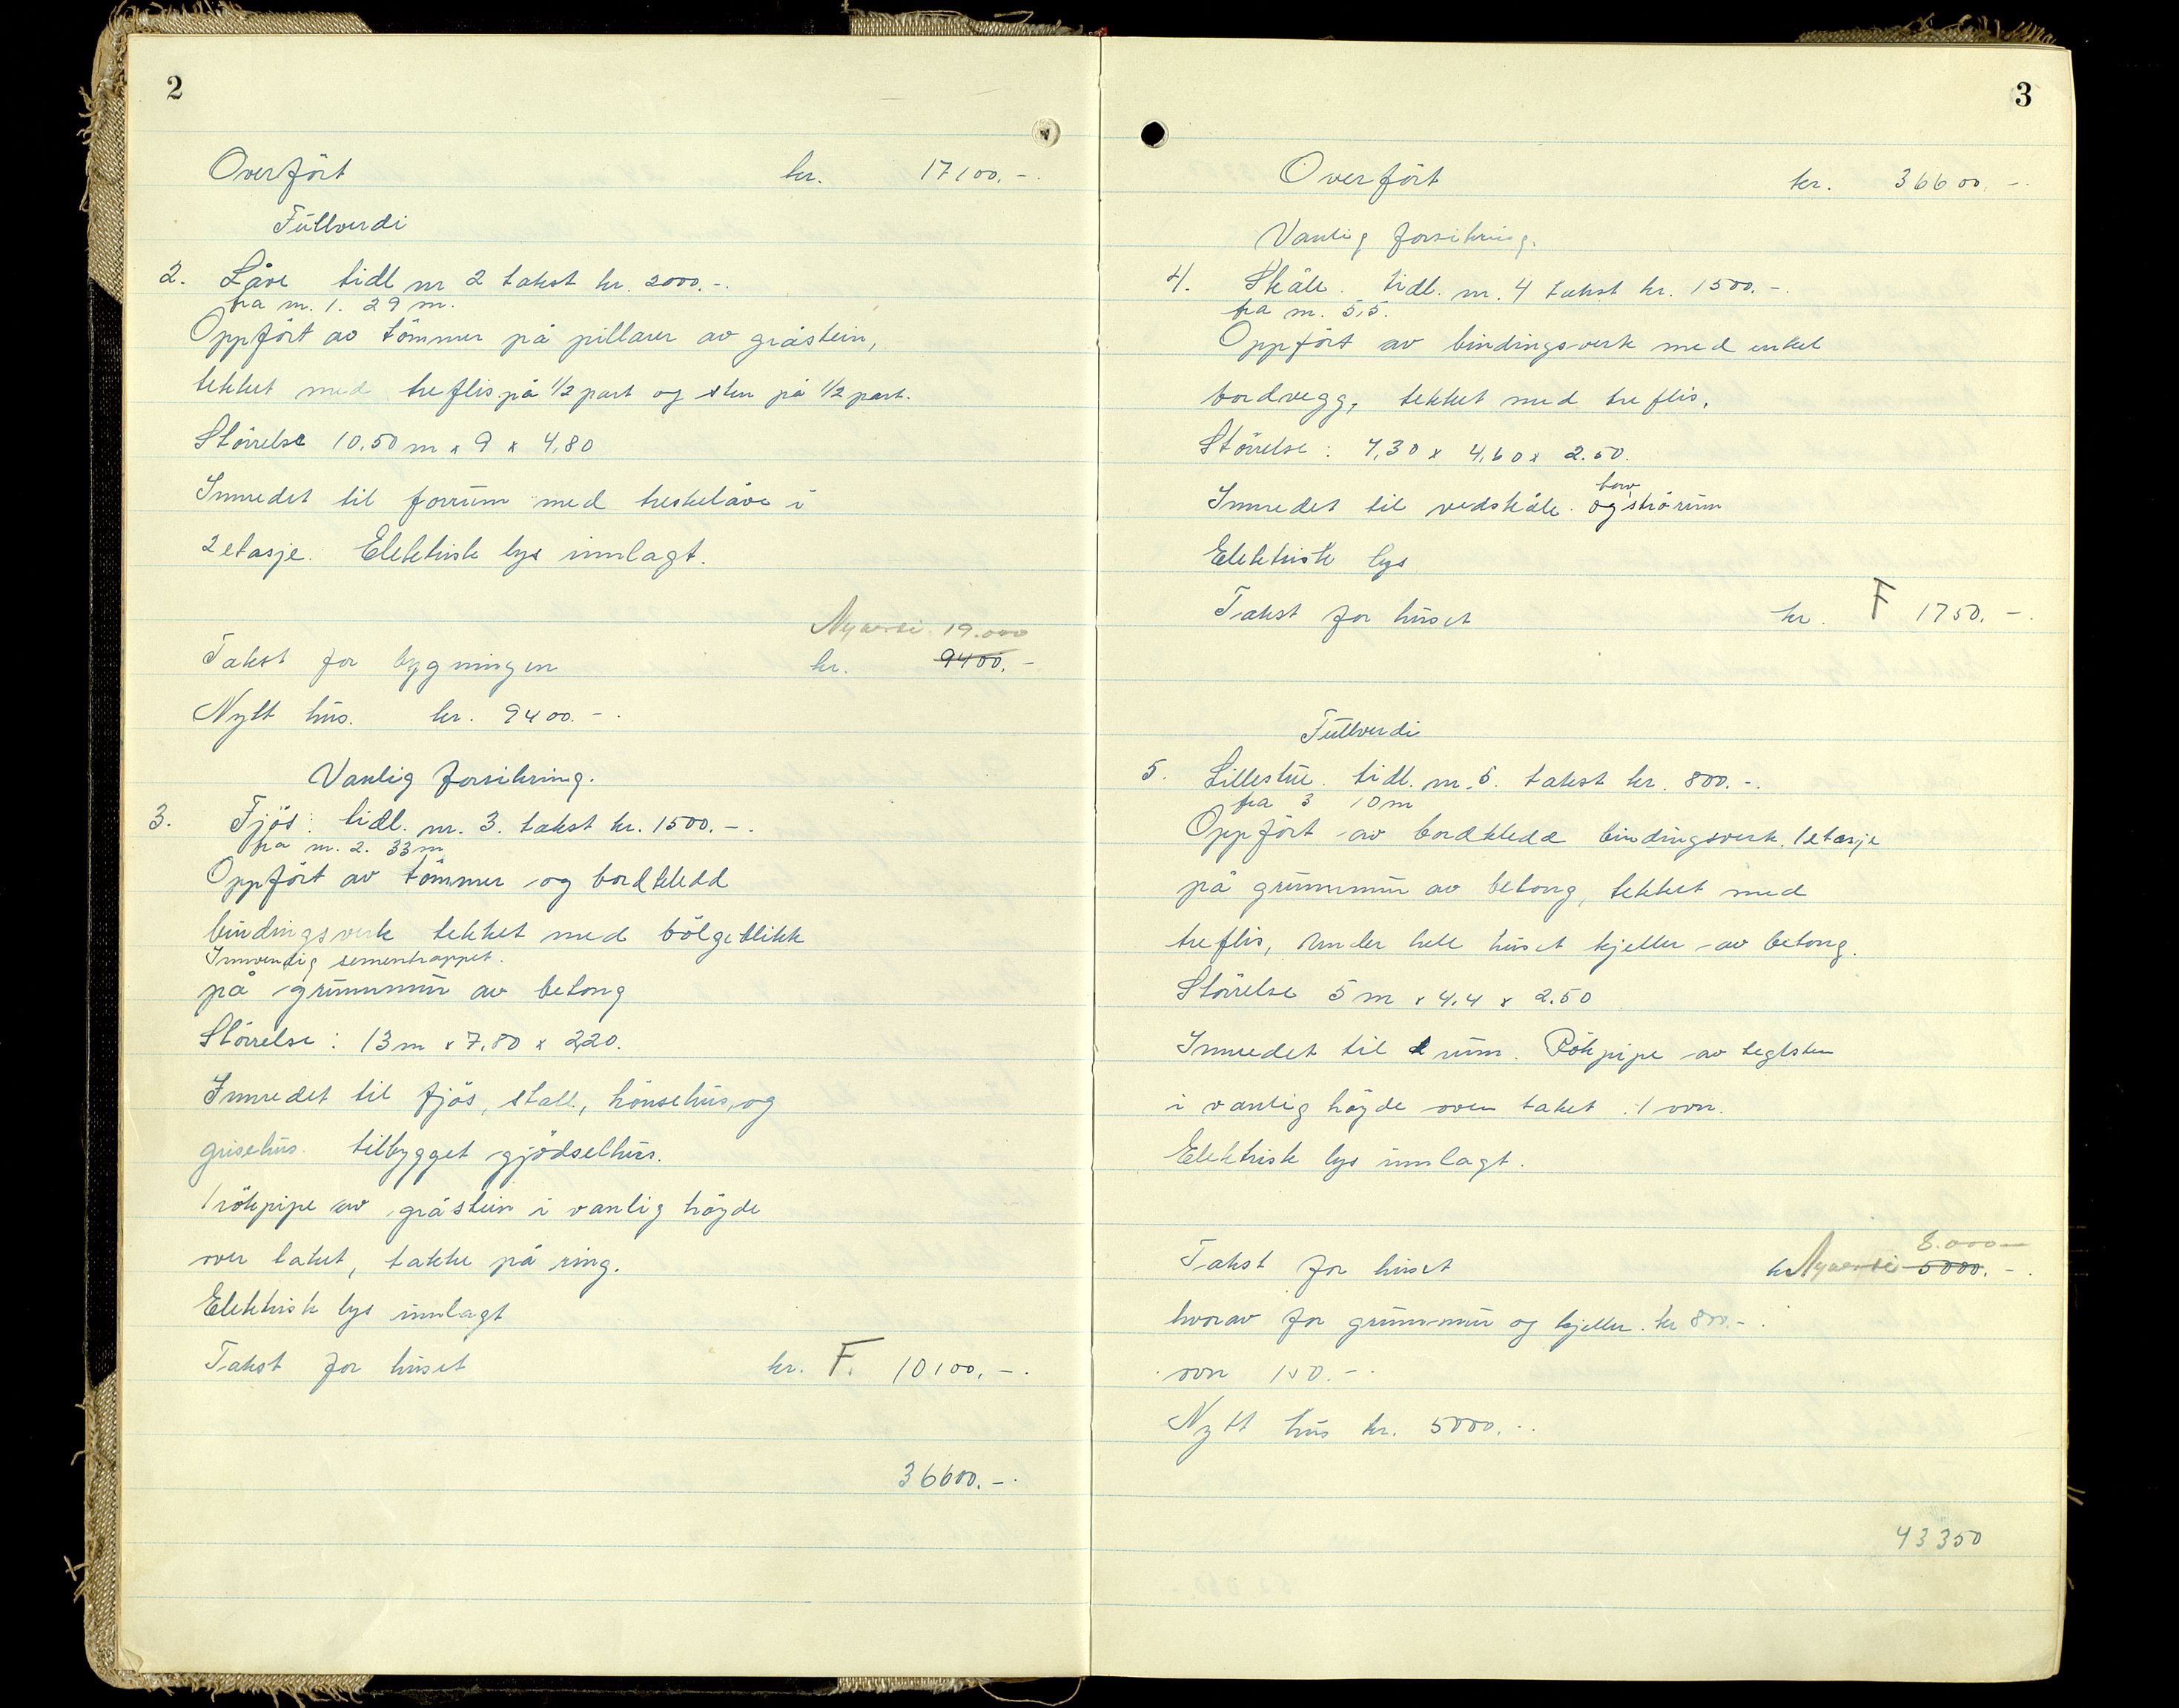 2
Overfört kr. 17100.-.
Fullverdi
2. Låve tidl nr 2 takst kr. 2000.-.
fra nr. 1. 29 m.
Oppfört av tömmer på pillarer av gråstein,
tekket med treflis på 1/2 part og sten på 1/2 part.
Störrelse 10,50 m x 9 x 4,80
Innredet til forrum med treskelåve i
2 etasje. Elektrisk lys innlagt.
Nyverdi 19.000
Takst for bygningen kr. 9400.-
Nytt hus. kr. 9400.-.
Vanlig forsikring.
3. Fjös: tidl. nr. 3. takst kr. 1500.-.
fra nr. 2. 33 m
Oppfört av tömmer og bordkledd
bindingsverk tekket med bölgeblikk
Innvendig sementrappet.
på grunnmur av betong
Störrelse: 13 m x 7,80 x 2,20.
Innredet til fjös, stall, hönsehus, og
grisehus. tilbygget gjödselhus.
1 rökpipe av gråstein i vanlig höyde
over taket, takke på ring.
Elektrisk lys innlagt
Takst for huset kr. F. 10100.-.
36600.-.
3
Overfört kr. 36600.-.
Vanlig forsikring.
4. Skåle. tidl. nr. 4 takst kr. 1500.-.
fra nr. 5, 5.
Oppfört av bindingsverk med enkel
bordvegg, tekket med treflis.
Störrelse: 7,30 x 4,60 x 2.50.
Innredet til vedskåle. og strörum
Elektrisk lys
Takst for huset kr. F 1750.-.
Fullverdi
5. Lillestue. tidl. nr. 5. takst kr. 800.-.
fra 3 10 m
Oppfört av bordkledd bindingsverk. 1 etasje
på grunnmur av betong, tekket med
treflis, under hele huset kjeller av betong.
Störrelse 5 m x 4,4 x 2.50
Innredet til rum. Rökpipe av teglsten
i vanlig höyde over taket. 1 ovn.
Elektrisk lys innlagt.
8.000-
Takst for huset kr Nyverdi 5000.-.
hvorav for grunnmur og kjeller. kr 800.-.
ovn 100.-.
Nytt hus kr. 5000.-.
43350